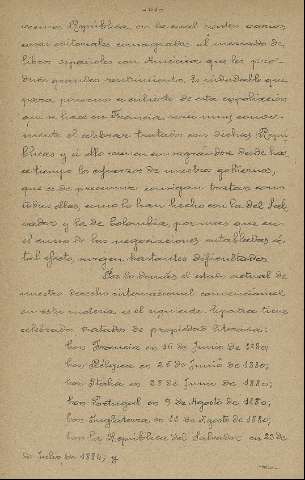 vecina República en la cual existen varias
casas editoriales consagradas al mercado de
libros españoles con América que les pro-
duce grandes rendimientos. Es indudable que
para procurar en de esta explotación
que se hace en Francia sería muy conve-
niente el celebrar tratados con dichas Repú-
blicas y á ello vienen encaminándose desde ha-
ce tiempo los esfuerzos de nuestro gobierno,
que es de presumir consigan tratar con
todas ellas, como lo han hecho con la del Sal-
vador y la de Colombia, por mas que en
el curso de las negociaciones entabladas á
tal efecto, surgen bastantes dificultades
Por lo demás el estado actual de
nuestro derecho internacional convencional
en esta materia es el siguiente. España tiene
celebrados tratados de propiedad literaria:
Con Francia en 16 de Junio de 1880;
Con Bélgica en 26 de Junio de 1880;
Con Italia en 28 de Junio de 1880;
Con Portugal en 9 de Agosto de 1880;
Con Inglaterra en 11 de Agosto de 1880;
Con la República del Salvador en 23 de
de Julio de 1884; y